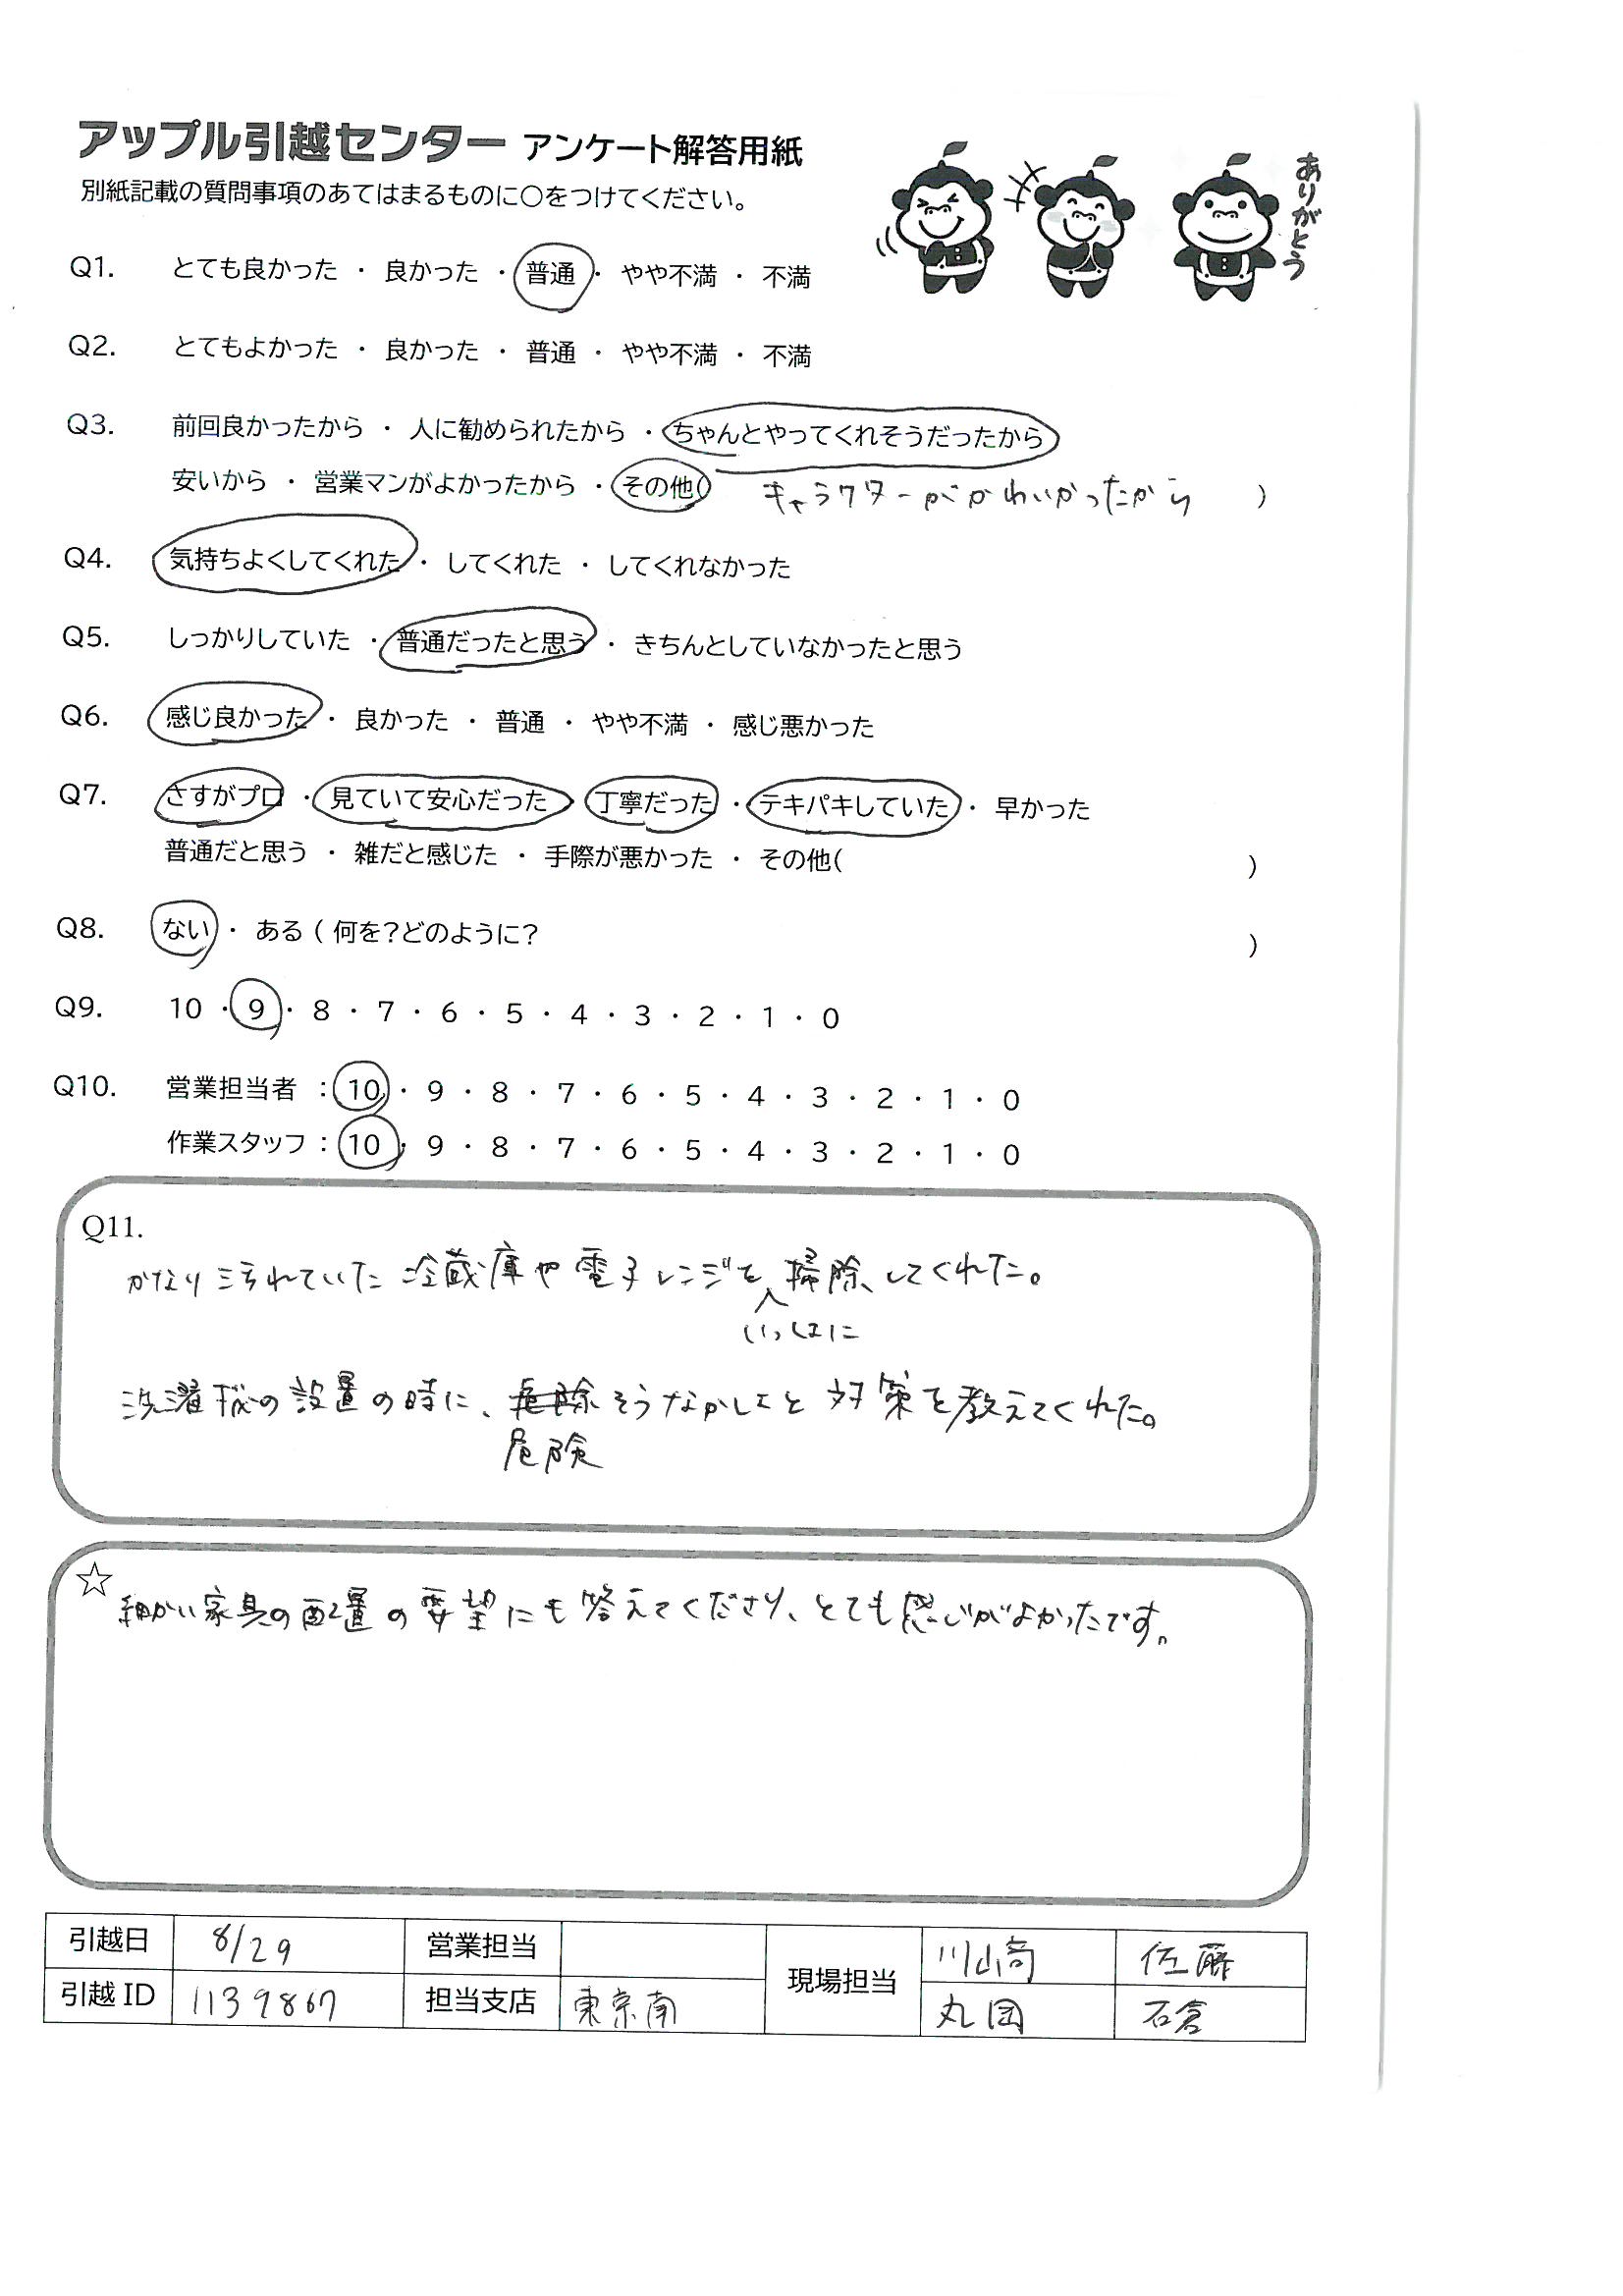 アップル引越センター アンケート解答用紙
別紙記載の質問事項のあてはまるものに○をつけてください。
ありがとう
Q1. とても良かった ・ 良かった ・ 普通 ・ やや不満 ・ 不満
Q2. とてもよかった ・ 良かった ・ 普通 ・ やや不満 ・ 不満
Q3. 前回良かったから ・ 人に勧められたから ・ ちゃんとやってくれそうだったから
安いから ・ 営業マンがよかったから ・ その他( キャラクターがかわいかったから )
Q4. 気持ちよくしてくれた ・ してくれた ・ してくれなかった
Q5. しっかりしていた ・ 普通だったと思う ・ きちんとしていなかったと思う
Q6. 感じ良かった ・ 良かった ・ 普通 ・ やや不満 ・ 感じ悪かった
Q7. さすがプロ ・ 見ていて安心だった ・ 丁寧だった ・ テキパキしていた ・ 早かった
普通だと思う ・ 雑だと感じた ・ 手際が悪かった ・ その他( )
Q8. ない ・ ある ( 何を?どのように? )
Q9. 10 ・ 9 ・ 8 ・ 7 ・ 6 ・ 5 ・ 4 ・ 3 ・ 2 ・ 1 ・ 0
Q10. 営業担当者 : 10 ・ 9 ・ 8 ・ 7 ・ 6 ・ 5 ・ 4 ・ 3 ・ 2 ・ 1 ・ 0
作業スタッフ : 10 ・ 9 ・ 8 ・ 7 ・ 6 ・ 5 ・ 4 ・ 3 ・ 2 ・ 1 ・ 0
Q11.
かなり汚れていた冷蔵庫や電子レンジを掃除してくれた。
いっしょに
洗濯機の設置の時に、そうなかしょと対策を教えてくれた。
危険
☆
細かい家具の配置の要望にも答えてくださり、とても感じがよかったです。
引越日 8/29 営業担当 現場担当 川崎 佐藤
引越ID 1139867 担当支店 東京南 丸岡 石倉